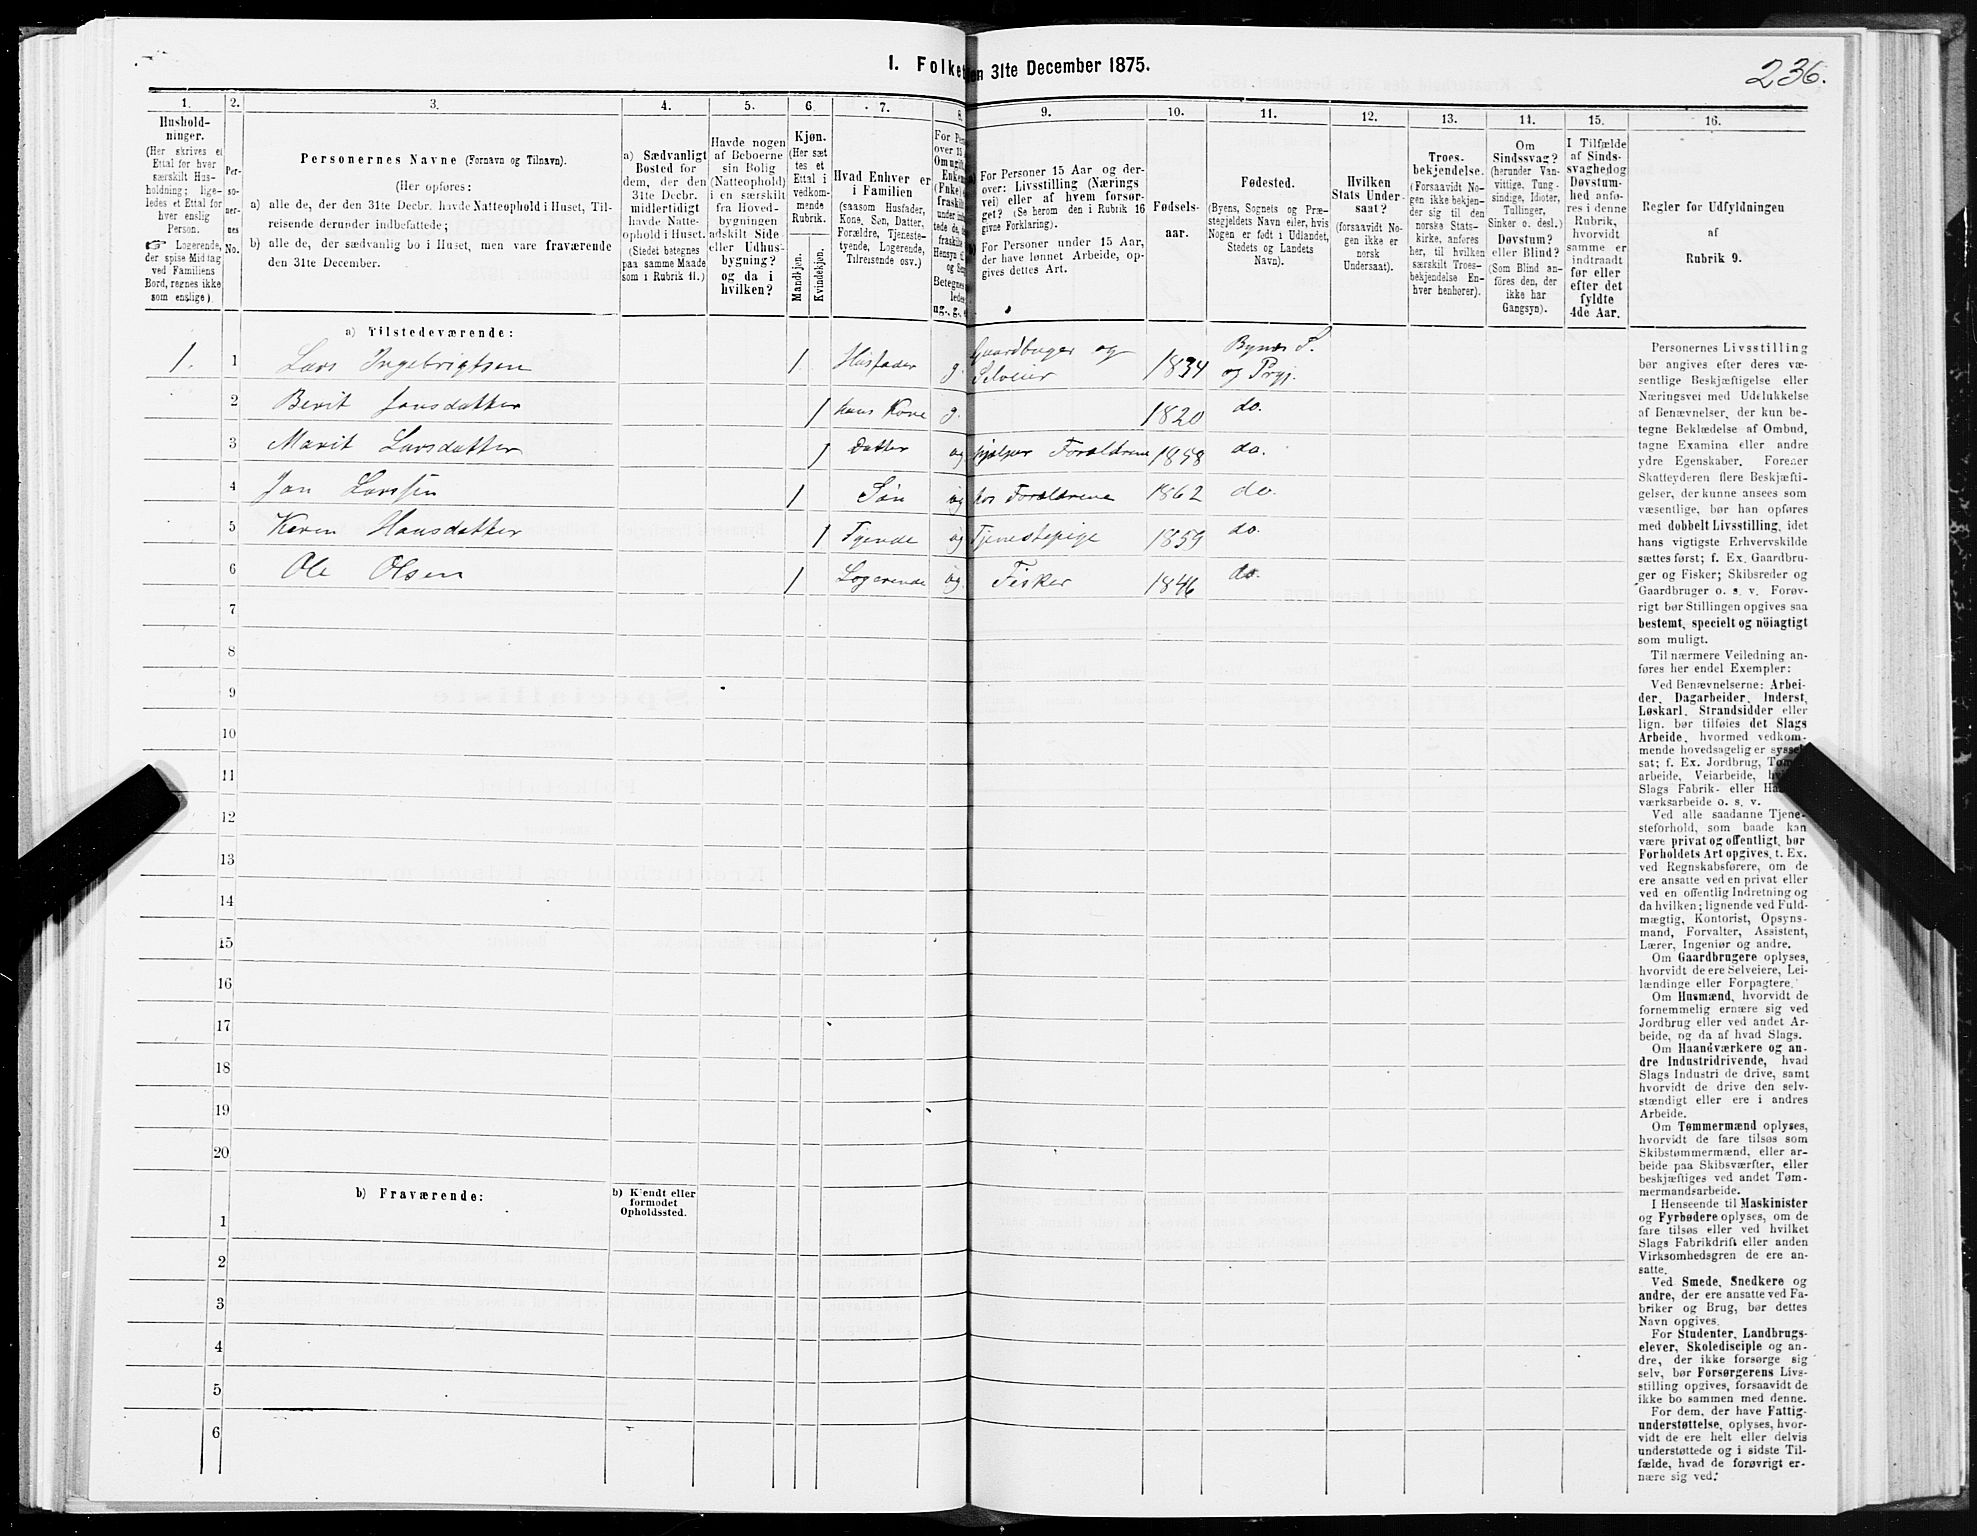 I. Folket
en 31te December 1875.
236.
1.
2.
3.
4.
5.
6.
7.
8.
9.
10.
11.
12.
13.
14.
15.
16.
Hushold-
ninger.
(Her skrives et
Ettal for hver
særskilt Hus-
holdning; lige-
ledes et Ettal for
hver enslig
Person.
☞ Logerende,
der spise Middag
ved Familiens
Bord, regnes ikke
som enslige)
Per-
so-
ner-
nes
No.
Personernes Navne (Fornavn og Tilnavn).
(Her opføres:
a) alle de, der den 31te Decbr. havde Natteophold i Huset, Til-
reisende derunder indbefattede;
b) alle de, der sædvanlig bo i Huset, men vare fraværende
den 31te December.
a) Sædvanligt
Bosted for
dem, der den
31te Decbr.
midlertidigt
havde Natte-
ophold i Huset.
(Stedet betegnes
paa samme Maade
som i Rubrik 11.)
Havde nogen
af Beboerne
sin Bolig
(Natteophold)
i en særskilt
fra Hoved-
bygningen
adskilt Side-
eller Udhus-
bygning?
og da i
hvilken?
Kjøn.
(Her sæt
tes et
Ettal i
vedkom-
mende
Rubrik.
Mandkjøn.
Kvindekjøn.
Hvad Enhver er
i Familien
(saasom Husfader,
Kone, Søn, Datter,
Forældre, Tjeneste-
tyende, Logerende,
Tilreisende osv.)
For Personer 15 Aar og der-
over: Livsstilling (Nærings
vei) eller af hvem forsør-
get? (Se herom den i Rubrik 16
givne Forklaring).
For Personer under 15 Aar,
der have lønnet Arbeide, op-
gives dettes Art.
Fødsels-
aar.
Fødested.
(Byens, Sognets og Præ-
stegjeldets Navn eller, hvis
Nogen er født i Udlandet,
Stedets og Landets
Navn).
Hvilken
Stats Under-
saat?
(forsaavidt No-
gen ikke er
norsk
Undersaat).
Troes-
bekjendelse.
(Forsaavidt No-
gen ikke bekjen-
der sig til den
norske Stats-
kirke, anføres
her, til hvilken
særskilt Troes-
bekjendelse En-
hver henhører).
Om
Sindssvag?
(herunder Van-
vittige, Tung-
sindige, Idioter,
Tullinger,
Sinker o. desl.)
Døvstum?
eller Blind?
(Som Blind an-
føres den, der
ikke har
Gangsyn).
I Tilfælde
af Sinds-
svaghedog
Døvstum-
hed anfø-
res i denne
Rubrik,
hvorvidt
samme er
indtraadt
før eller
efter det
fyldte
4de Aar.
Regler for Udfyldningen
af
Rubrik 9.
a) Tilstedeværende:
1. 1 Lars Ingebrigtsen 1 Husfader g. Gaardbruger og Selveier 1834 Bynæs S. og Prgj.
2 Berit Jonsdatter 1 hans Kone g. 1820 do.
3 Marit Larsdatter 1 Datter ug hjælper Forældrene 1858 do.
4 Jon Larssen 1 Søn ug hos Forældrene 1862 do.
5 Karen Hansdatter 1 Tyende ug Tjenestepige 1859 do.
6 Ole Olsen 1 Logerende ug. Fisker 1846 do.
7
8
9
10
11
12
13
14
15
16
17
18
19
20
b) Fraværende:
b) Kjendt eller
formodet
Opholdssted.
1
2
3
4
5
6
Personernes Livsstilling
bør angives efter deres væ-
sentlige Beskjæftigelse eller
Næringsvei med Udelukkelse
af Benævnelser, der kun be-
tegne Beklædelse af Ombud,
tagne Examina eller andre
ydre Egenskaber. Forener
Skatteyderen flere Beskjæfti-
gelser, der kunne ansees som
væsentlige, bør han opføres
med dobbelt Livsstilling, idet
hans vigtigste Erhvervskilde
sættes først; f. Ex. Gaardbru-
ger og Fisker; Skibsreder og
Gaardbruger o. s. v. Forøv-
rigt bør Stillingen opgives saa
bestemt, specielt og nöiagtigt
som muligt.
Til nærmere Veiledning an-
føres her endel Exempler:
Ved Benævnelserne: Arbei-
der, Dagarbeider, Inderst,
Løskarl, Strandsidder eller
lign. bør tilføies det Slags
Arbeide, hvormed vedkom-
mende hovedsagelig er syssel-
sat; f. Ex. Jordbrug,
arbeide, Veiarbeide,
Slags Fabrik- eller
værksarbeide o. s. v.
Ved alle saadanne Tjene-
steforhold, som baade kan
være privat og offentligt, bør
Forholdets Art opgives, t. Ex.
ved Regnskabsførere, om de
ere ansatte ved en privat eller
ved en offentlig Indretning og
da hvilken; lignende ved Fuld-
mægtig, Kontorist, Opsyns-
mand, Forvalter, Assistent,
Lærer, Ingeniør og andre.
Om Gaardbrugere oplyses,
hvorvidt de ere Selveiere, Lei-
lændinge eller Forpagtere.
Om Husmænd, hvorvidt de
fornemmelig ernære sig ved
Jordbrug eller ved andet Ar-
beide, og da af hvad Slags.
Om Haandværkere og an-
dre Industridrivende, hvad
Slags Industri de drive, samt
hvorvidt de drive den selv-
stændigt eller ere i andres
Arbeide.
Om Tømmermænd oplyses,
hvorvidt de fare tilsøs som
Skibstømmermænd, eller ar-
beide paa Skibsværfter, eller
beskjæftiges ved andet Tøm-
mermandsarbeide.
I Henseende til Maskinister
og Fyrbødere oplyses, om de
fare tilsøs eller ved hvilket
Slags Fabrikdrift eller anden
Virksomhedsgren de ere an-
satte.
Ved Smede, Snedkere og
andre, der ere ansatte ved Fa-
briker og Brug, bør dettes
Navn opgives.
For Studenter, Landbrugs-
elever, Skoledisciple og an-
dre, der ikke forsørge sig
selv, bør Forsørgerens Livs-
stilling opgives, forsaavidt de
ikke bo sammen med denne.
For dem, der have Fattig-
understøttelse, oplyses, hvor-
vidt de ere helt eller delvis
understøttede og i sidste Til-
fælde, hvad de forøvrigt er-
nære sig ved.